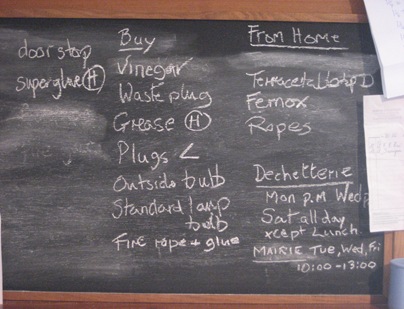 door stop
superglue H
Buy
Vinegar
Waste plug
Grease H
Plugs <
Outside bulb
Standard lamp
bulb
Fire rope + glue
From Home
Fernox
Ropes
Dechetterie
Mon p.m Wed p
Sat all day
xcept Lunch
MAIRIE Tue, Wed, Fri
10:00-13:00